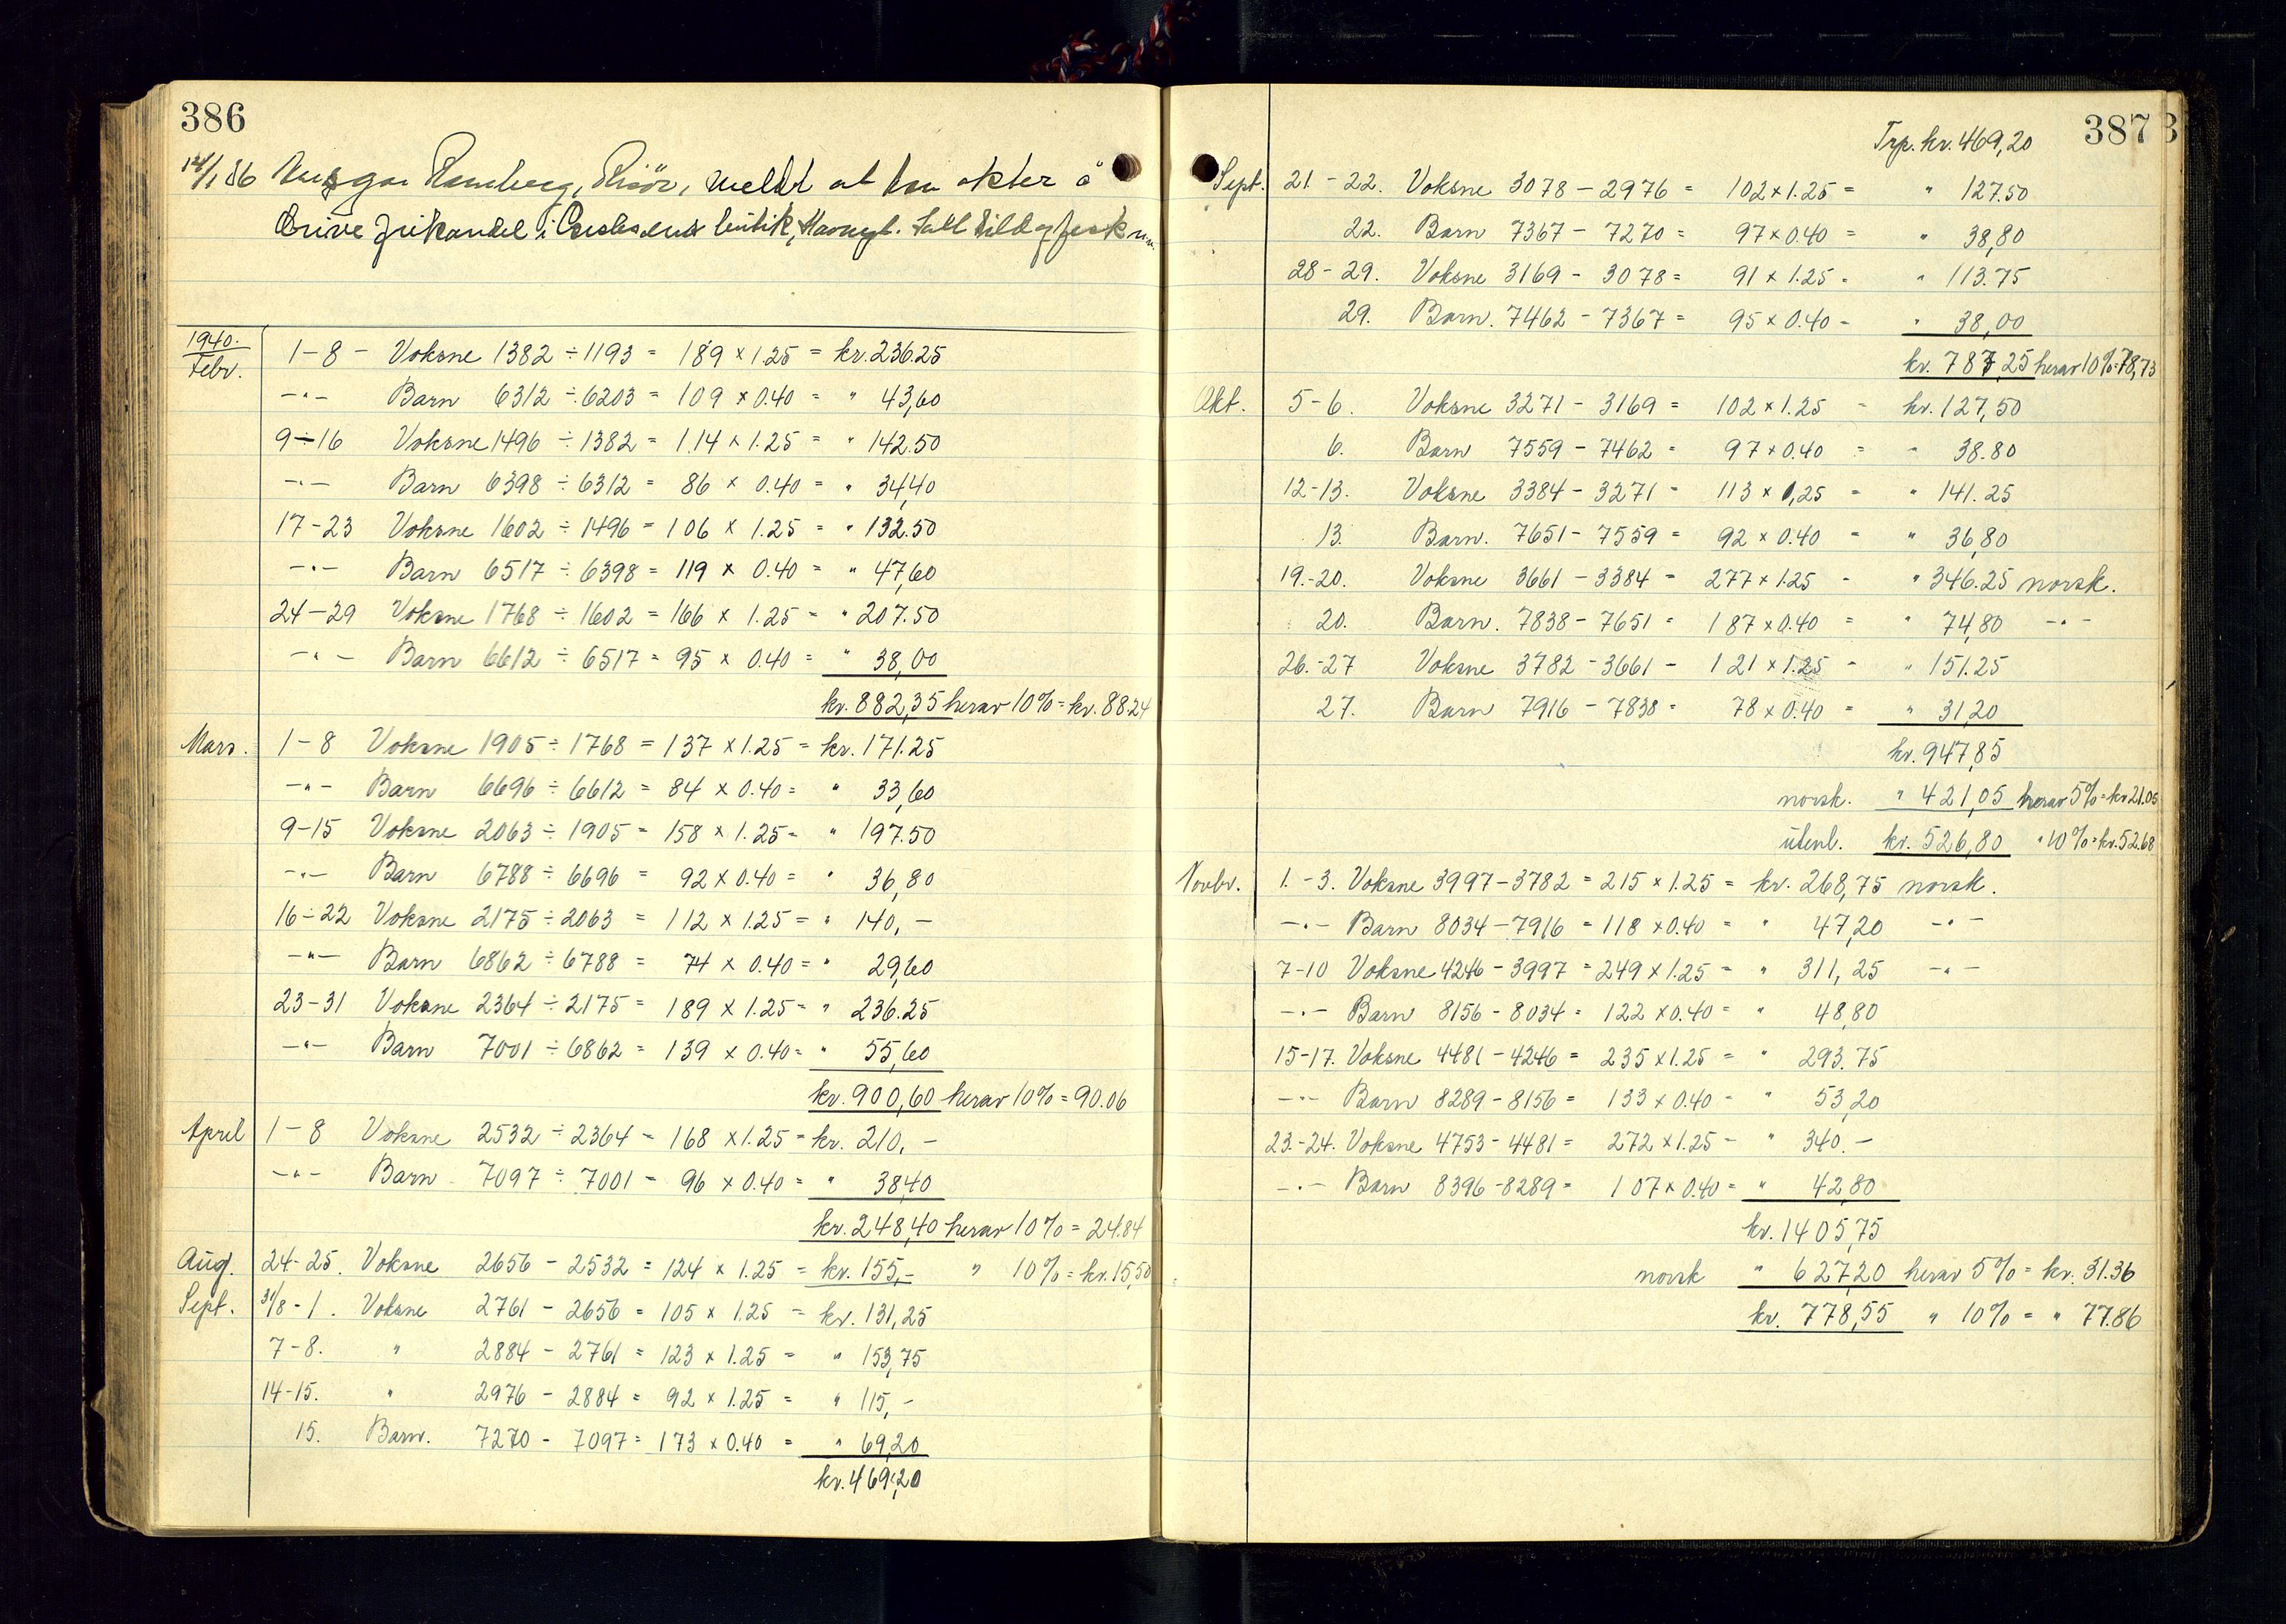 386
14/1 36 Ramberg, Risör, meldt at han akter å
drive frihandel i butik, Havnegt. Salt sild og fisk m.m.
1940.
Febr. 1-8 - Voksne 1382 ÷ 1193 = 189 x 1.25 = kr. 236.25
-"- Barn 6312 ÷ 6203 = 109 x 0.40 = " 43,60
9÷16 Voksne 1496 ÷ 1382 = 114 x 1.25 = " 142.50
-"- Barn 6398 ÷ 6312 = 86 x 0.40 = " 34,40
17-23 Voksne 1602 ÷ 1496 = 106 x 1.25 = " 132.50
-"- Barn 6517 ÷ 6398 = 119 x 0.40 = " 47,60
24-29 Voksne 1768 ÷ 1602 = 166 x 1.25 = " 207.50
-"- Barn 6612 ÷ 6517 = 95 x 0.40 = " 38,00
kr. 882,35 herav 10% = kr. 88.24
Mars. 1-8 Voksne 1905 ÷ 1768 = 137 x 1.25 = kr. 171.25
-"- Barn 6696 ÷ 6612 = 84 x 0.40 = " 33,60
9-15 Voksne 2063 ÷ 1905 = 158 x 1.25 = " 197.50
-"- Barn 6788 ÷ 6696 = 92 x 0.40 = " 36,80
16÷22 Voksne 2175 ÷ 2063 = 112 x 1.25 = " 140,-
-"- Barn 6862 ÷ 6788 = 74 x 0.40 = " 29,60
23-31 Voksne 2364 ÷ 2175 = 189 x 1.25 = " 236.25
-"- Barn 7001 ÷ 6862 = 139 x 0.40 = " 55,60
kr. 900,60 herav 10% = 90.06
April 1-8 Voksne 2532 ÷ 2364 = 168 x 1.25 = kr. 210,-
-"- Barn 7097 ÷ 7001 = 96 x 0.40 = " 38,40
kr. 248,40 herav 10% = 24.84
Aug. 24-25. Voksne 2656 - 2532 = 124 x 1.25 = kr. 155,- " 10% = kr. 15,50
Sept. 31/8 - 1. Voksne 2761 - 2656 = 105 x 1.25 = kr. 131,25
7-8. " 2884 - 2761 = 123 x 1.25 = " 153,75
14-15. " 2976 - 2884 = 92 x 1.25 = " 115,-
15. Barn. 7270 - 7097 = 173 x 0.40 = " 69,20
kr. 469,20
387
Trp. kr. 469,20
Sept. 21.-22. Voksne 3078 - 2976 = 102 x 1.25 = " 127.50
22. Barn 7367 - 7270 = 97 x 0.40 = " 38,80
28-29. Voksne 3169 - 3078 = 91 x 1.25 = " 113.75
29. Barn. 7462 - 7367 = 95 x 0.40 = " 38,00
kr. 787,25 herav 10% = 78,73
Okt. 5-6. Voksne 3271 - 3169 = 102 x 1.25 = kr. 127,50
6. Barn 7559 - 7462 = 97 x 0.40 = " 38.80
12-13. Voksne 3384 - 3271 = 113 x 1,25 = " 141.25
13. Barn. 7651 - 7559 = 92 x 0.40 = " 36,80
19.-20. Voksne 3661 - 3384 = 277 x 1.25 = " 346.25 norsk.
20. Barn. 7838 - 7651 = 187 x 0.40 = " 74,80 -"-
26.-27 Voksne 3782 - 3661 = 121 x 1.25 = " 151.25
27. Barn 7916 - 7838 = 78 x 0.40 = " 31,20
kr. 947,85
norsk. " 421,05 herav 5% = kr 21.05
utenl. kr. 526,80 " 10% = kr. 52.68
Novbr. 1. - 3. Voksne 3997 - 3782 = 215 x 1.25 = kr. 268,75 norsk.
-"- Barn 8034 - 7916 = 118 x 0.40 = " 47,20 -"-
7-10 Voksne 4246 - 3997 = 249 x 1.25 = " 311,25 -"-
-"- Barn 8156 - 8034 = 122 x 0.40 = " 48,80
15-17. Voksne 4481 - 4246 = 235 x 1.25 = " 293.75
-"- Barn 8289 - 8156 = 133 x 0.40 = " 53,20
23.-24. Voksne 4753 - 4481 = 272 x 1.25 = " 340.-
-"- Barn 8396 - 8289 = 107 x 0.40 = " 42,80
kr. 1405,75
norsk " 627,20 herav 5% = kr. 31.36
kr. 778,55 " 10% = " 77.86